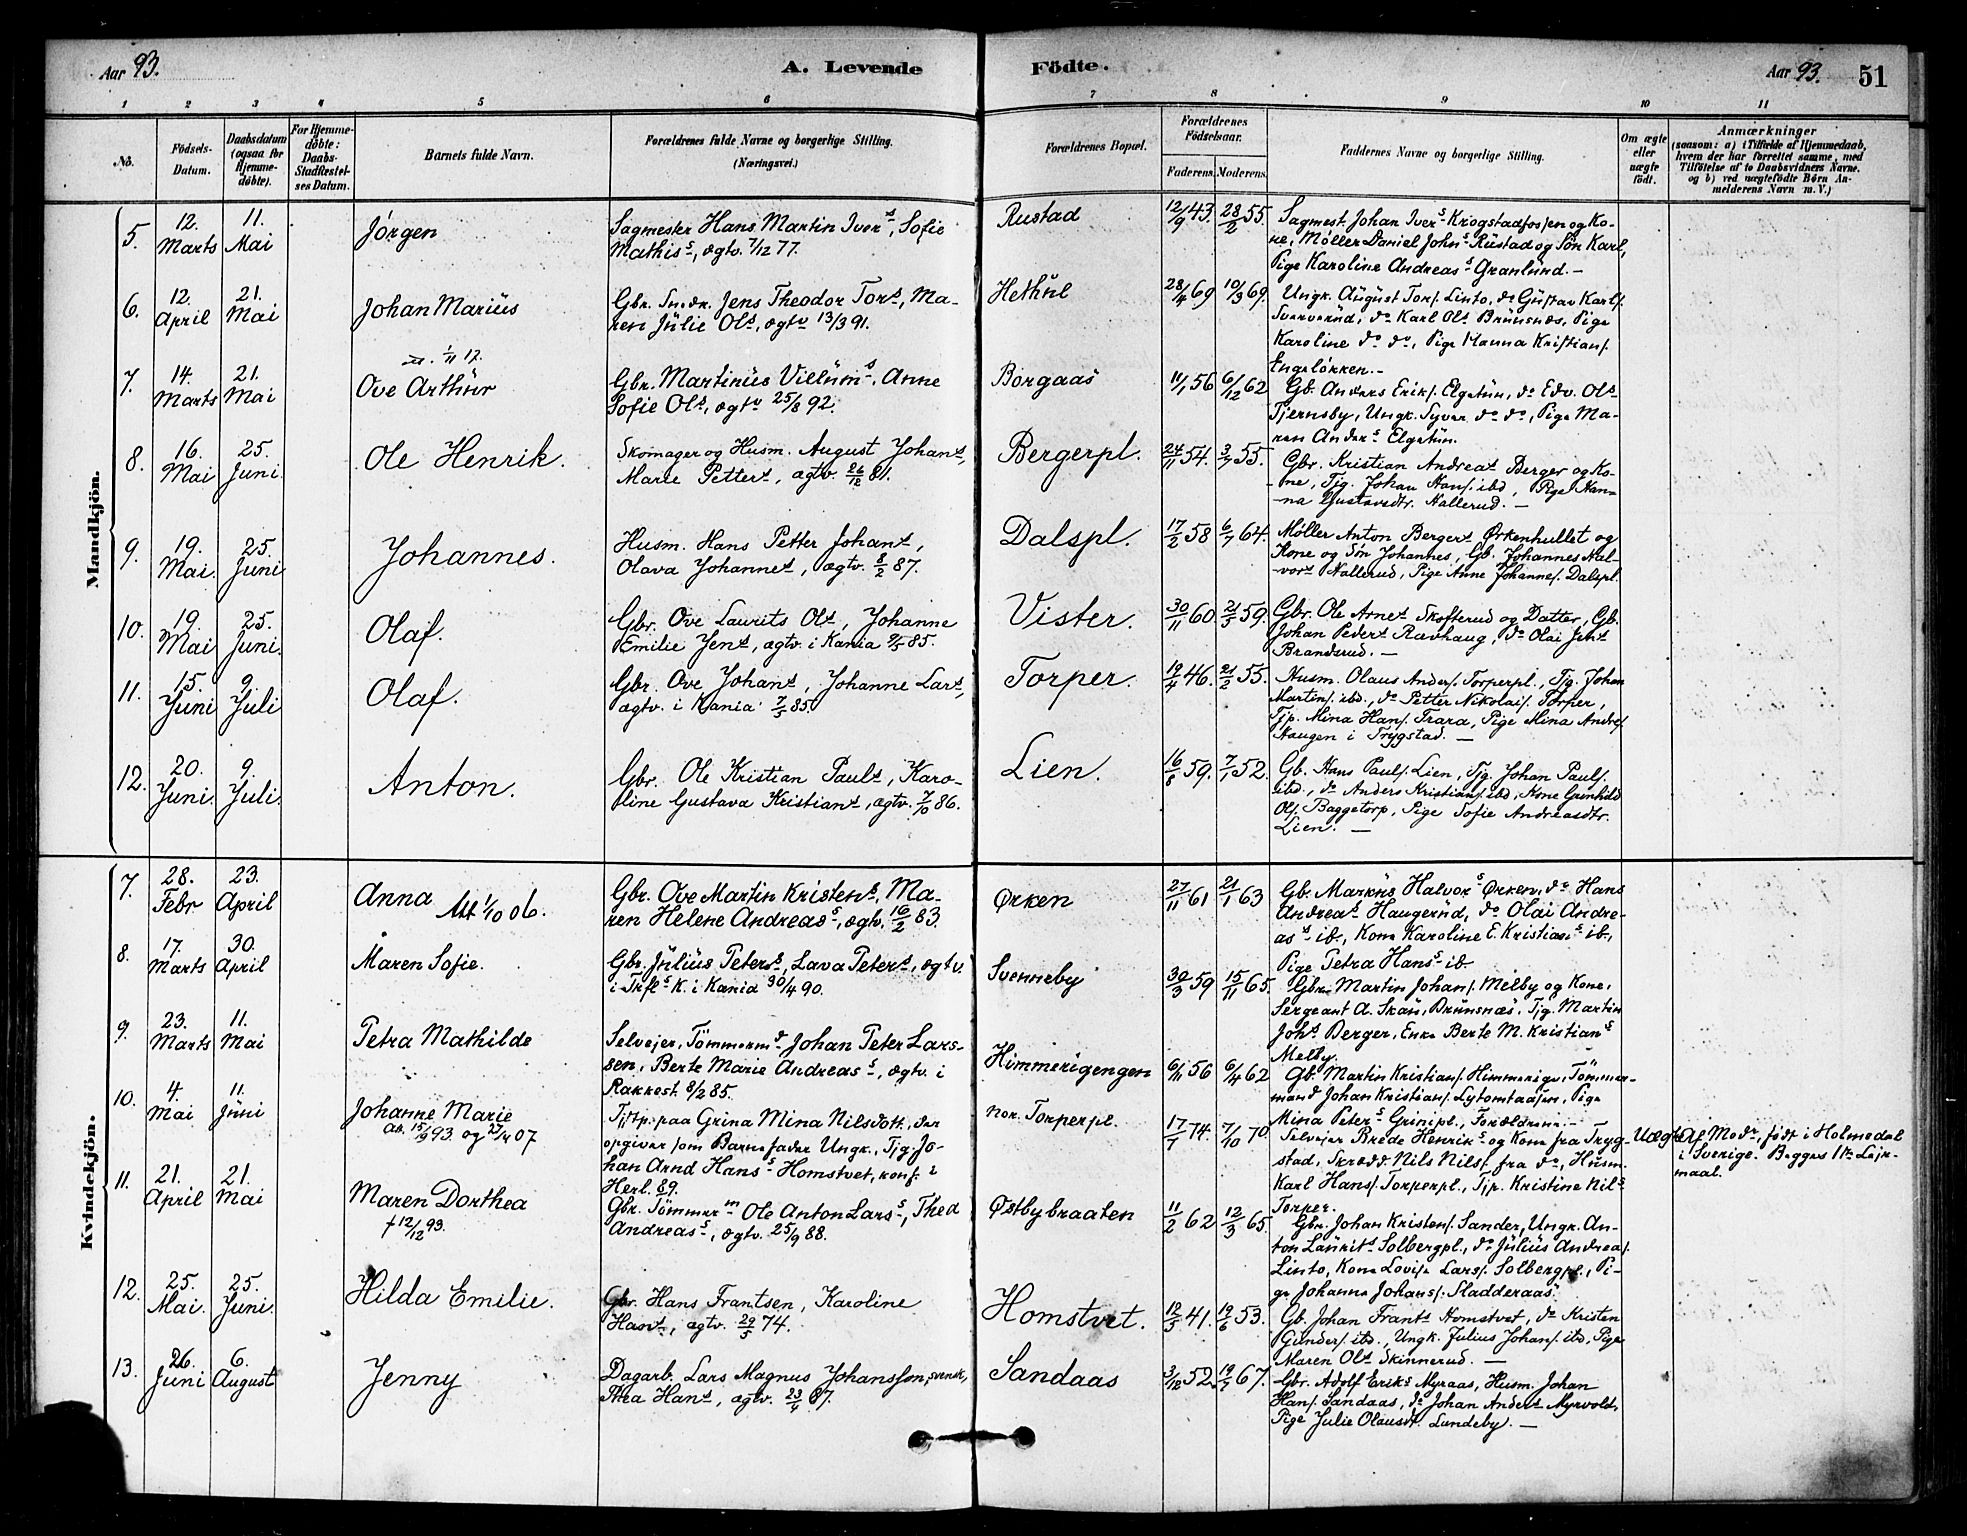 Aar 93.
A. Levende
Födte.
Aar 93.
51
1 2 3 4 5 6 7 8 9 10 11
No.
Födsels-Datum.
Daabsdatum (ogsaa for Hjemme-døbte).
For Hjemme-døbte: Daabs-Stadfestelses Datum.
Barnets fulde Navn.
Forældrenes fulde Navne og borgerlige Stilling. (Næringsvei.)
Forældrenes Bopæl.
Forældrenes Födselsaar.
Faderens. Moderens.
Faddernes Navne og borgerlige Stilling.
Om ægte eller uægte födt.
Anmærkninger
(saasom: a) i Tilfælde af Hjemmedaab,
hvem der har forrettet samme, med
Tilföielse af to Daabsvidners Navne.
og b) ved uægtefödte Børn An-
melderens Navn m. V.)
Mandkjön.
5.
12. Marts
11. Mai
Jørgen
Sagmester Hans Martin Ivers, Sofie
Mathiss, ægtv. 7/12 77.
Rustad
12/9 43.
28/2 55.
Sagmest. Johan Ivers Krogstadfossen og Ko-
ne, Møller Daniel Johns Rustad og Søn Karl,
Pige Karoline Andreass Granlund. -
6.
12. April
21. Mai
Johan Marius
Gbr. Snedr. Jens Theodor Tors, Ma-
ren Julie Ols, ægtv 13/3 91.
Hethul
28/4 69
10/3 69.
Ungk. August Tors. Linto, do Gustav Karls.
Sververud, do Karl Ols Brunsnæs, Pige
Karoline do do, Pige Hanna Kristians.
Engeløkken. -
7.
14. Marts
21. Mai
1/11 17.
Ove Arthur
Gbr. Martinus Villums, Anne
Sofie Ols, ægtv 25/8 92.
Borgaas
11/1 56
6/12 62
Gb. Anders Eriks. Elgetun, do Edv. Ols
Tjernsby, Ungk. Syver do do, Pige Ma-
ren Anders Elgetun.
8.
16. Mai
25. Juni.
Ole Henrik.
Skomager og Husm. August Johans,
Marie Petters, ægtv. 26/12 81.
Bergerpl.
24/11 54.
3/7 55.
Gbr. Kristian Andreas Berger og Ko-
ne, Tjg. Johan Hans. ibd, Pige Han-
na Gustavsdtr. Hallerud. -
9.
19. Mai.
25. Juni
Johannes.
Husm. Hans Petter Johans,
Olava Johannes, ægtv. 8/2 87.
Dalspl.
17/2 58
6/7 64.
Møller Anton Bergers Ørkenhullet og
Kone og Søn Johannes, Gb. Johannes Hal-
vors Hallerud, Pige Anne Johannes. Dalspl.
10.
19. Mai
25. Juni.
Olaf.
Gbr. Ove Laurits Ols, Johanne
Emilie Jens, ægtv. i Kania 9/5 85.
Vister.
30/11 60
21/3 59.
Gbr. Ole Arnes Skofterud og Datter, Gb.
Johan Peders Rævhaug, do Olai Jens
Brandsrud. -
11.
15. Juni
9. Juli
Olaf.
Gbr. Ove Johans, Johanne Lars,
ægtv. i Kania 7/5 85.
Torper.
19/4 46.
21/2 55.
Husm. Olaus Anders. Torperpl., Tjg. Johan
Martins. ibd., do Petter Nikolais. Torper,
Tjp. Mina Hans. Trara, Pige Mina Andrs.
Haugen i Trygstad. -
12.
20. Juni.
9. Juli.
Anton.
Gbr. Ole Kristian Pauls, Karo-
line Gustava Kristians, ægtv. 7/10 86.
Lien.
16/8 59.
7/1 52.
Gb. Hans Pauls. Lien, Tjg. Johan Pauls.
ibd., do Anders Kristians. ibd, Kone Gunhild
Ols. Baggetorp, Pige Sofie Andreasdtr.
Lien. -
Kvindekjön.
7.
28. Febr
23. April
Anna
Att 1/10 06.
Gbr. Ove Martin Kristens, Ma-
ren Helene Andreass, ægtv. 16/2 83.
Ørken
27/11 61
21/1 63
Gb. Markus Halvors Ørken, do Hans
Andreas Haugerud, do Olai Andre-
as ib., Kone Karoline E. Kristians ib.,
Pige Petra Hanss ib.
8.
17. Marts
30. April
Maren Sofie.
Gbr. Julius Peters, Lava Peters, ægtv.
i Trefs K. i Kania 30/4 90.
Svenneby
30/3 59
15/11 65.
Gbr. Martin Johans. Melby og Kone,
Sergeant A. Skau, Brunsnæs, Tjg. Martin
Johs Berger, Enke Berte M. Kristians
Melby.
9.
23. Marts
11. Mai
Petra Mathilde
Selveier, Tømmermd Johan Peter Lars-
sen, Berte Marie Andreass, ægtv. i
Rakkest. 8/2 85.
Himmerigengen
6/11 56
6/4 62
Gb. Martin Kristians. Himmerigen, Tömmer-
mand Johan Kristians. Lytomtaasen, Pige
Mina Peters Grinipl., Forældrene. -
10.
4. Mai
11. Juni
Johanne Marie
Att. 15/9 93. og 27/4 07
Tjtp. paa Grina Mina Nilsdott., der
opgiver som Barnefader Ungk., Tjg. Jo-
han Arnd Hanss Homstvet, konf. i
Herl. 89.
Nor. Torperpl.
17/7 74.
7/10 70.
Selveier Brede Henriks og Kone fra Tryg-
stad, Skrædd. Nils Nils. fra do, Husm.
Karl Hans. Torperpl., Tjp. Kristine Nils
Torper.
Uægte
Af Modr, født i Holmedal
i Sverige. Begges 1ste Leier-
maal.
11.
21. April
21. Mai
Maren Dorthea
† 12/12 93.
Gbr. Tömmerm Ole Anton Larss, Thea
Andreass, ægtv. 25/9 88.
Østbybraaten
11/2 62
12/3 65.
Gbr. Johan Kristens. Sander, Ungk. An-
ton Laurits Solbergpl., do Julius Andreas.
Linto, Kone Lovise Lars. Solbergpl., Pi-
ge Johanne Johans. Sladderaas.
12.
25. Mai.
25. Juni.
Hilda Emilie.
Gbr. Hans Frantsen, Karoline
Hans, ægtv. 29/5 74.
Homstvet.
12/5 41.
19/6 53.
Gb. Johan Frants Homstvet, do Kristen
Gunders. ibd., Ungk. Julius Johans. ibd, Pige
Maren Ols Skinnerud. -
13.
26. Juni
6. August
Jenny
Dagarb. Lars Magnus Johansson, svensk,
Thea Hans, ægtv. 23/4 87.
Sandaas
3/12 52.
19/7 67.
Gbr. Adolf Eriks Myraas, Husm. Johan
Hans. Sandaas, do Johan Anders Myrvold,
Pige Julie Olausdt. Lundeby. -